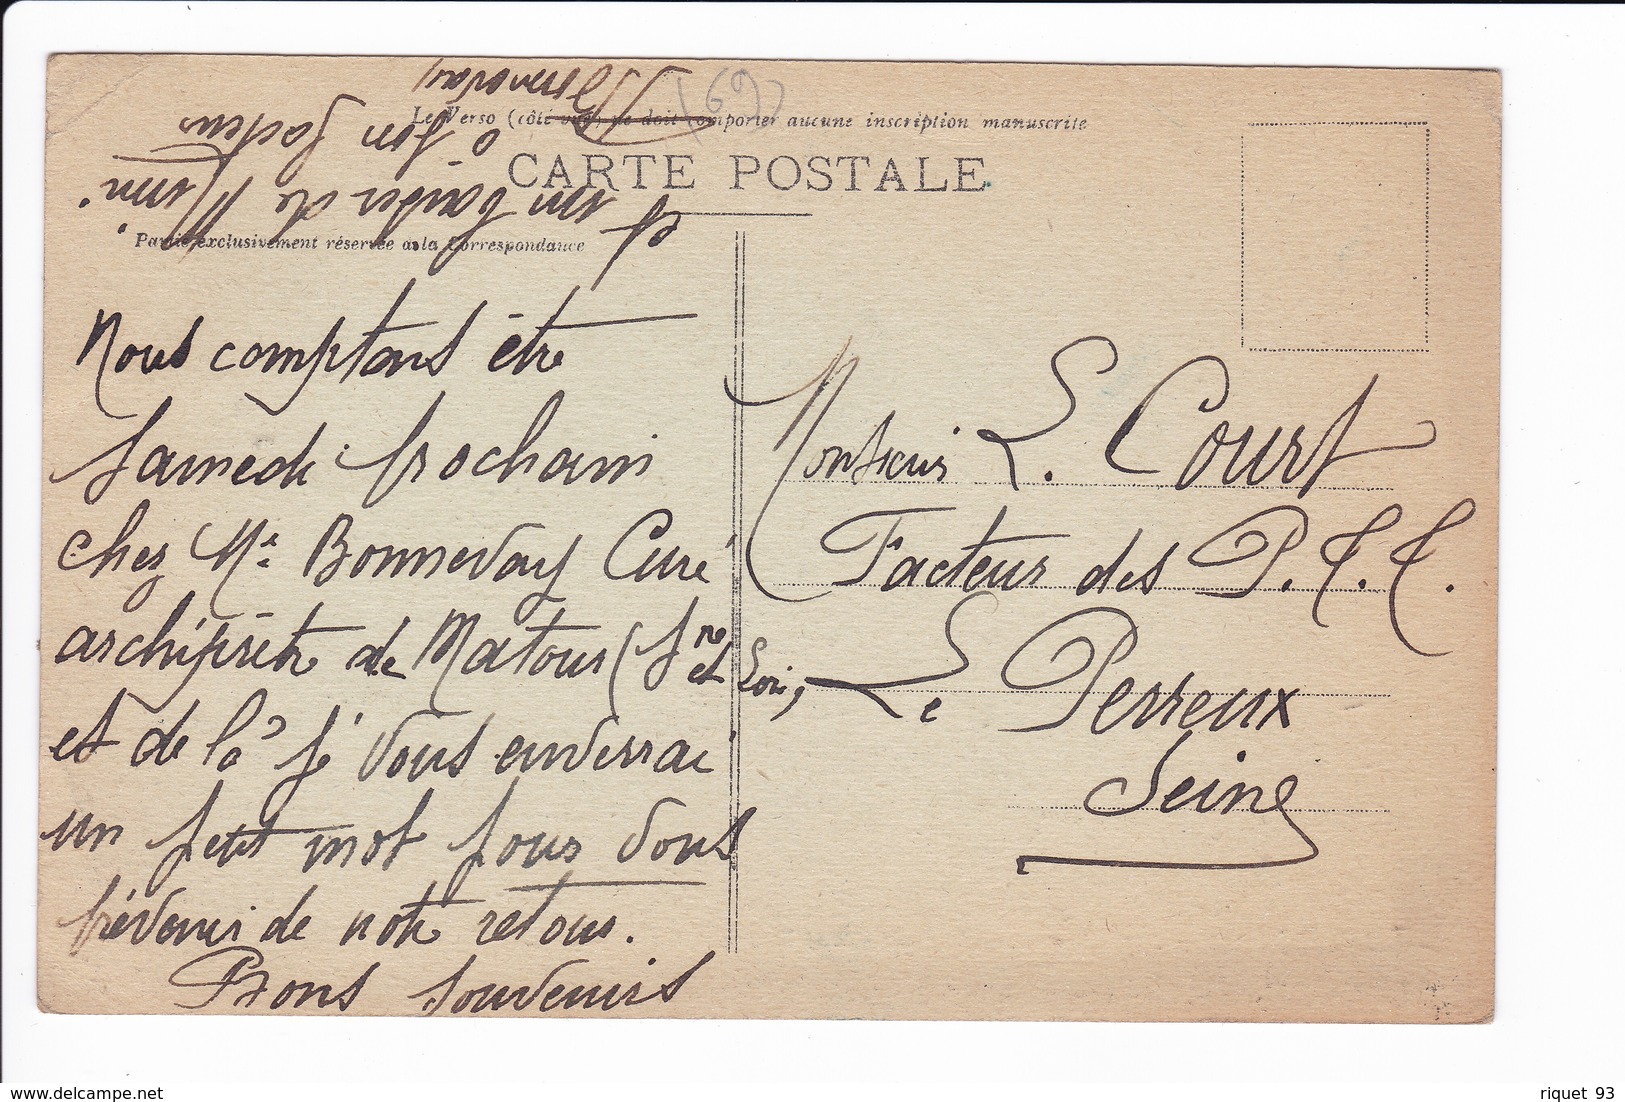 Le Verso (côté vue) ne doit comporter aucune inscription manuscrite
CARTE POSTALE
Partie exclusivement réservée à la Correspondance
Nous comptons être
Samedi prochain
chez Mr Bonnevay Curé
archiprêtre de Matour (Sne et Loire,
et de là je vous enverrai
un petit mot pour vous
prévenir de notre retour.
Bons souvenirs
un baiser de Mimi
à son facteur
Bonnevay
Monsieur L. Court
Facteur des P.T.T.
Le Perreux
Seine
169
riquet 93